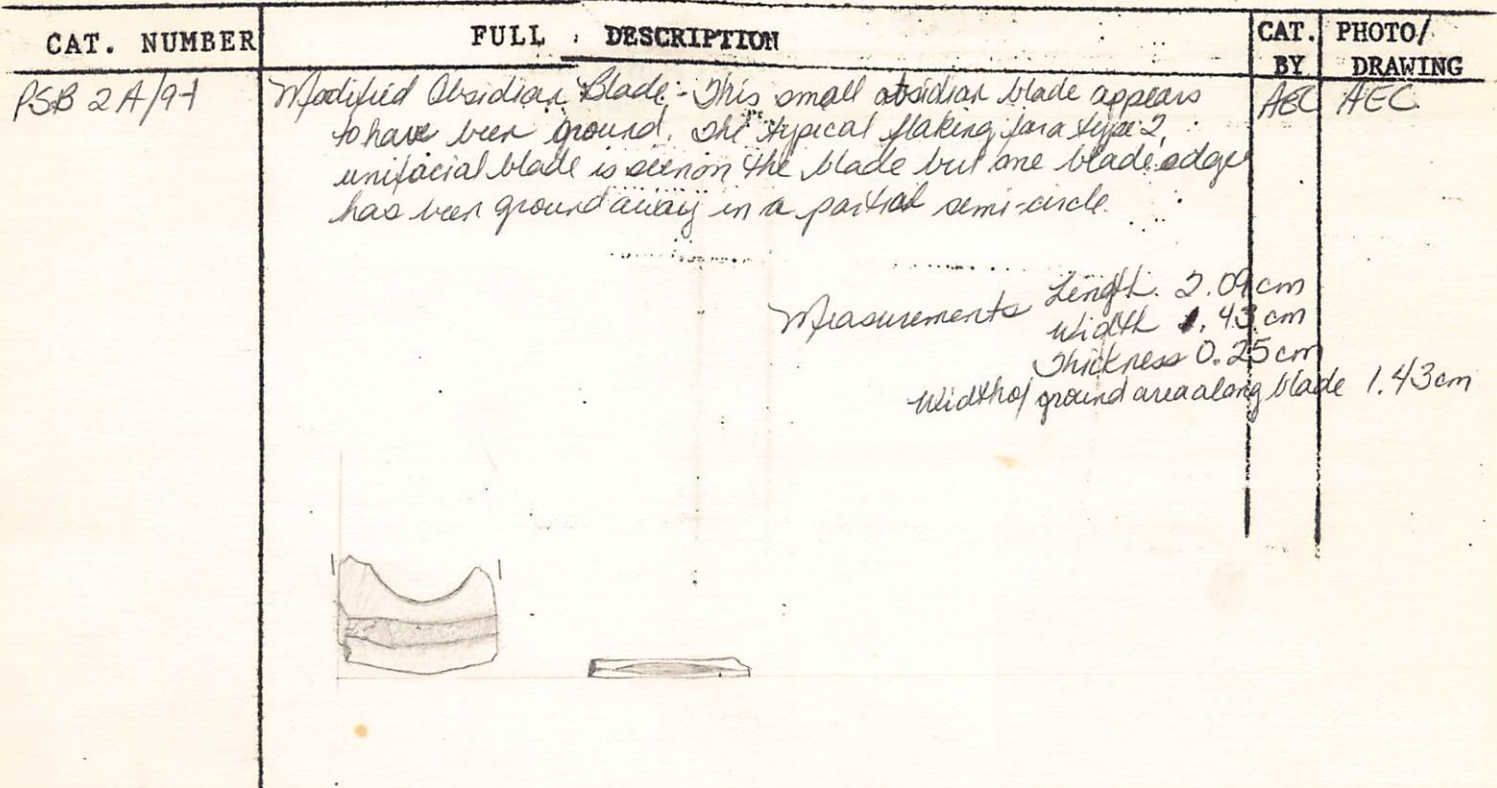 CAT. NUMBER FULL DESCRIPTION CAT. BY PHOTO/ DRAWING
PSB 2A/9-1 Modified Obsidian Blade - This small obsidian blade appears AEC AEC
to have been ground. The typical flaking for a type 2
unifacial blade is seen on the blade but one blade edge
has been ground away in a partial semi-circle.
Measurements Length. 2.09cm
Width 1.43 cm
Thickness 0.25cm
Width of ground area along blade 1.43cm